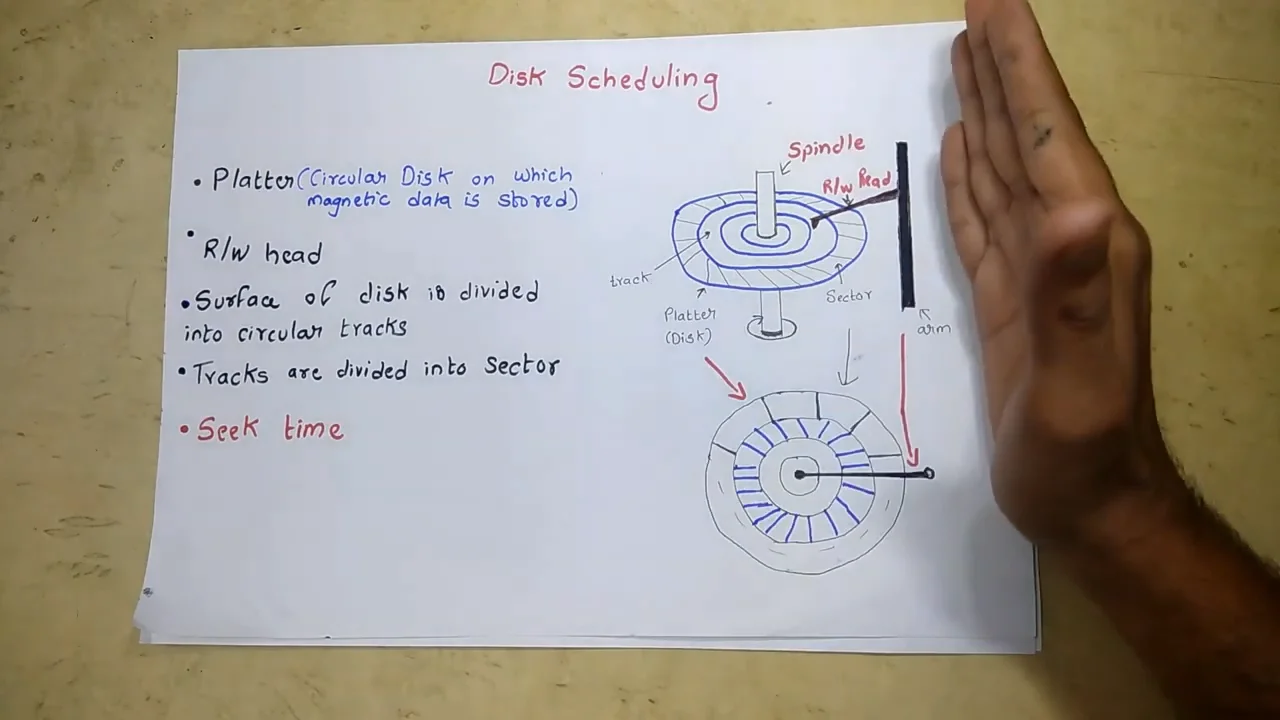 Disk Scheduling
• Platter (Circular Disk on which
magnetic data is stored)
• R/W head
• Surface of disk is divided
into circular tracks
• Tracks are divided into Sector
• Seek time
Spindle
R/W Head
track
Sector
Platter
(Disk)
arm